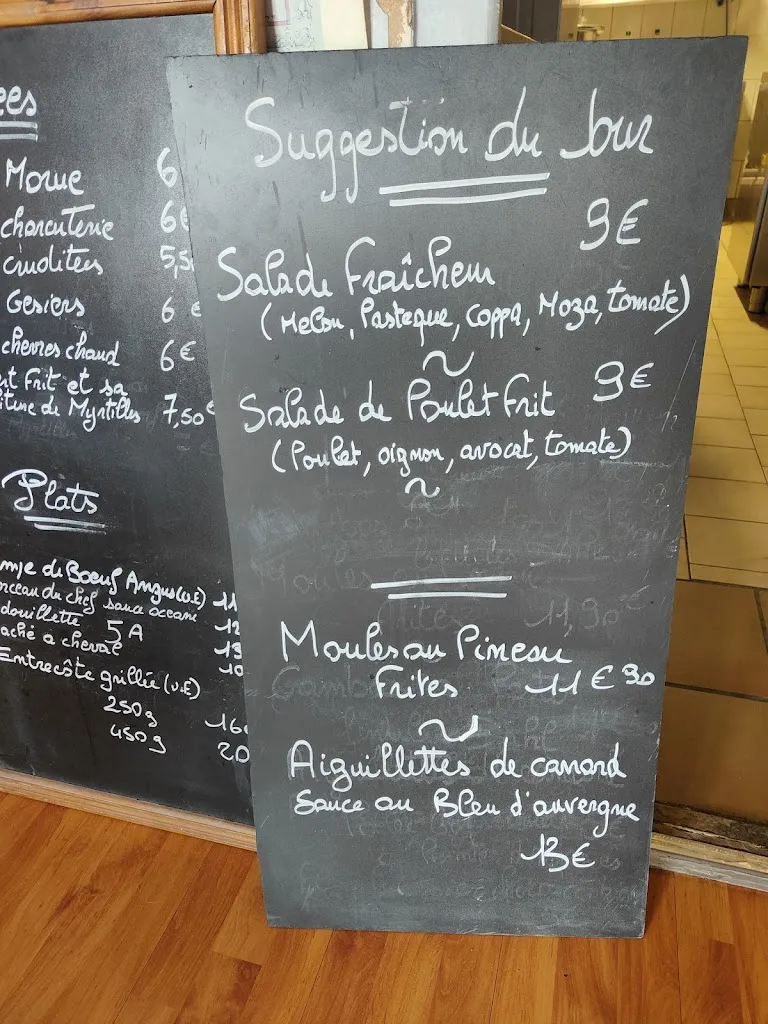 Morue 6
charcuterie 6€
crudites 5,5
Gesiers 6 €
chevres chaud 6€
Frit et sa
de Myrtilles 7,50€
Plats
de Boeuf Angus (U.E) 11
du chef sauce oceane 12
5A 13
a cheval 10
Entrecôte grillée (U.E)
250g 16€
450g 20
Suggestion du Jour
9€
Salade Fraîcheur
(Melon, Pasteque, Coppa, Moza, tomate)
~
Salade de Poulet Frit 9€
(Poulet, oignon, avocat, tomate)
~
Moules au Pineau
Frites 11€90
~
Aiguillettes de canard
Sauce au Bleu d'auvergne
13€